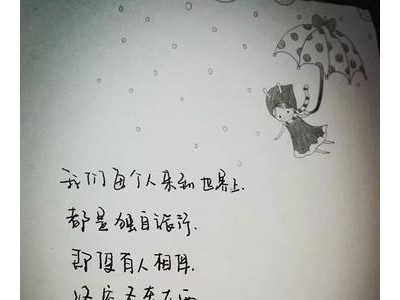 我们每个人来到世界上.
都是独自旅行.
即使有人相伴.